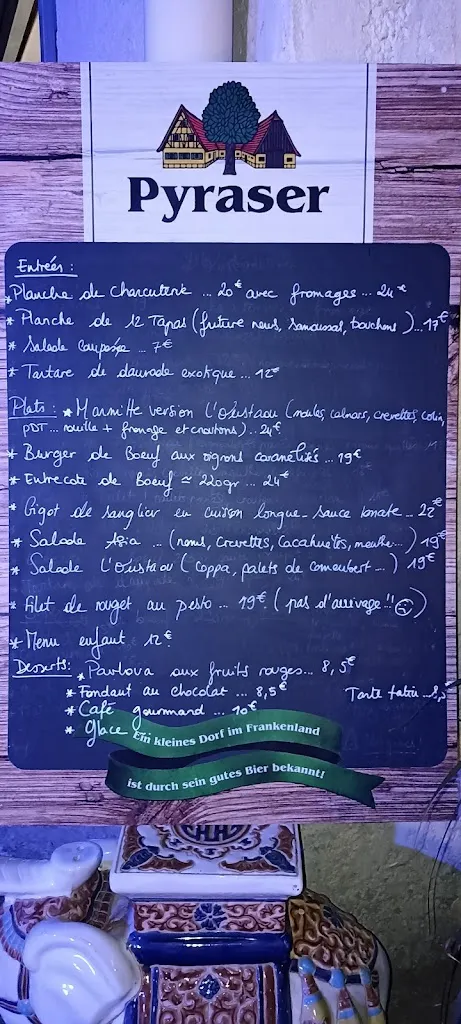 Pyraser
Entrées :
* Planche de Charcuterie ... 20€ avec fromages ... 24€
* Planche de 12 Tapas (friture nems, samoussas, bouchons) ... 17€
* Salade composée ... 7€
* Tartare de daurade exotique ... 12€
Plats : * Marmitte version L'Oustaou (moules, calmars, crevettes, colin,
PDT... rouille + fromage et croutons) .. 24€
* Burger de Boeuf aux oignons caramélisés ... 19€
* Entrecote de Boeuf ≃ 220gr ... 24€
* Gigot de sanglier en cuisson longue - sauce tomate ... 22€
* Salade Asia ... (nems, crevettes, cacahuètes, menthe...) 19€
* Salade L'Oustaou (coppa, palets de camembert ...) 19€
* Filet de rouget au pesto ... 19€ (pas d'arrivage !! ☹)
* Menu enfant 12€
Desserts: * Pavlova aux fruits rouges... 8,5€
* Fondant au chocolat ... 8,5€ Tarte
* Café gourmand ... 10€
* Glace
Ein kleines Dorf im Frankenland
ist durch sein gutes Bier bekannt!